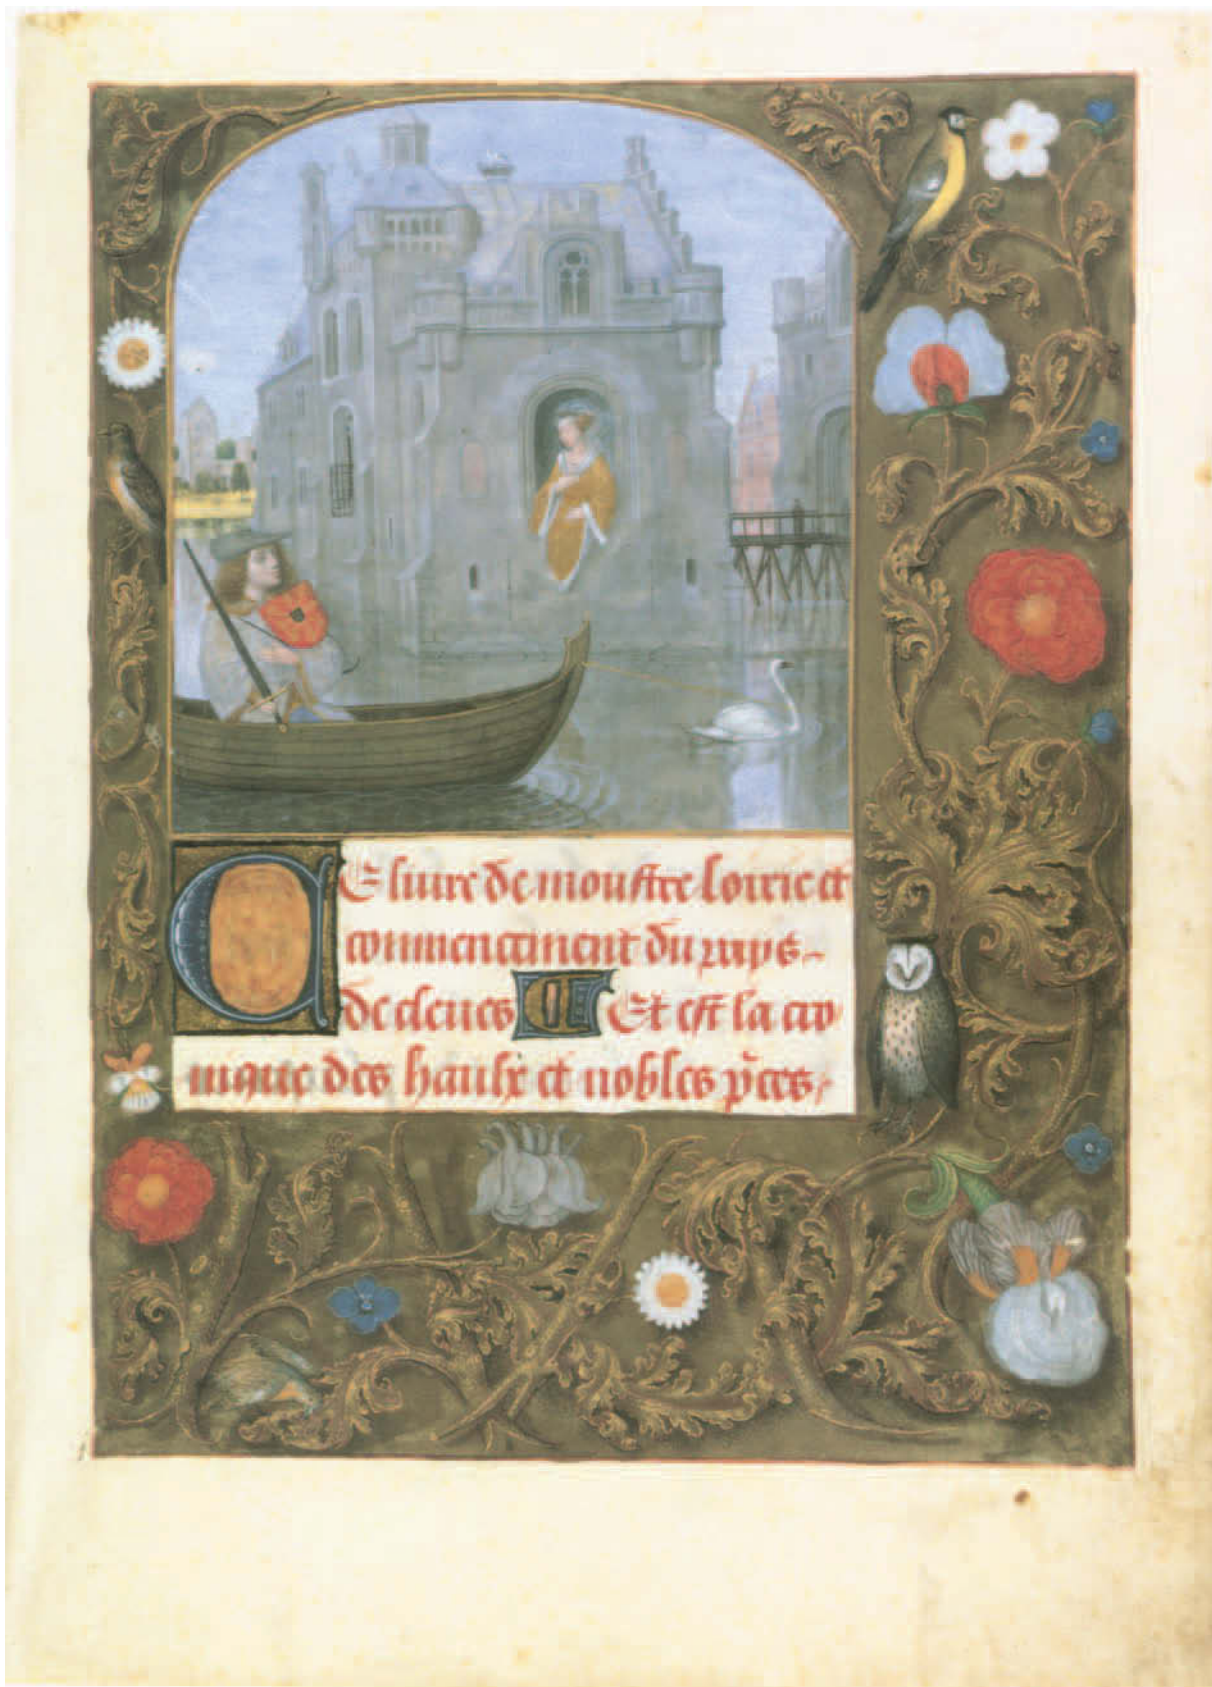 CE livre de monstre lorrie et
commencement du pays
de cleues Et est la cro
nique des haulx et nobles p̃ces